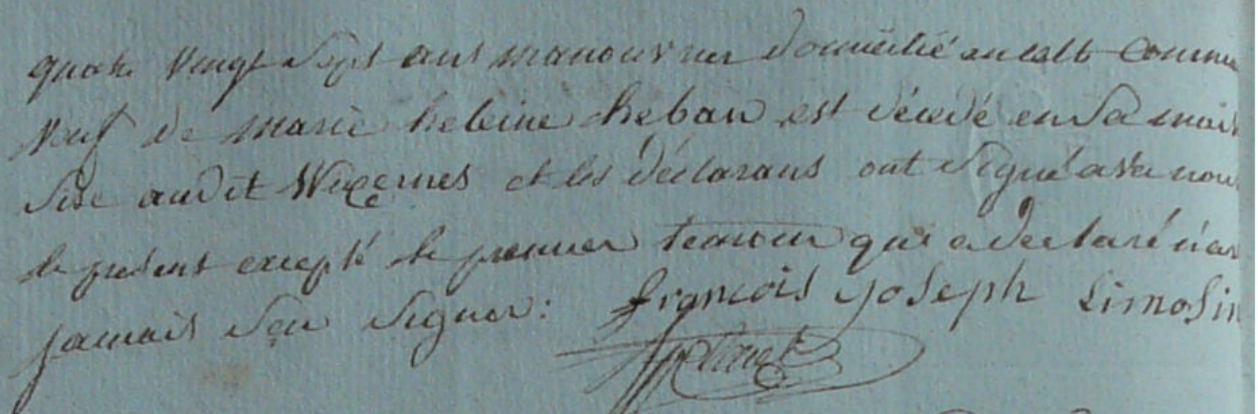 quatre Vingt Sept ans manouvrier domicilié en cette Commu
veuf de marie heleine heban est décédé en Sa mais
Sise audit Wizernes et les déclarans ont Signé avec nous
le présent excepté le premier temoin qui a declaré n'av
jamais Seu Signer: françois joseph Limosin